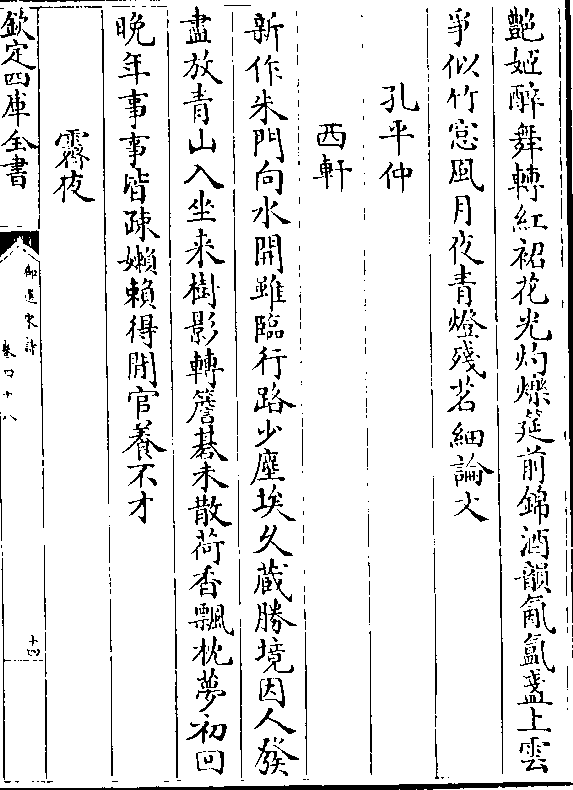 艷姬醉舞轉紅裙花光灼爍筵前錦酒韻氤氲盞上雲
爭似竹窓風月夜青燈殘茗細論文
孔平仲
西軒
新作朱門向水開雖臨行路少塵埃久蔵勝境因人發
盡放青山入坐来樹影轉簷碁未散荷香飄枕夢初回
晩年事事皆疎嬾賴得閒官養不才
霽夜
欽定四庫全書
御選宋詩
卷四十八
十四